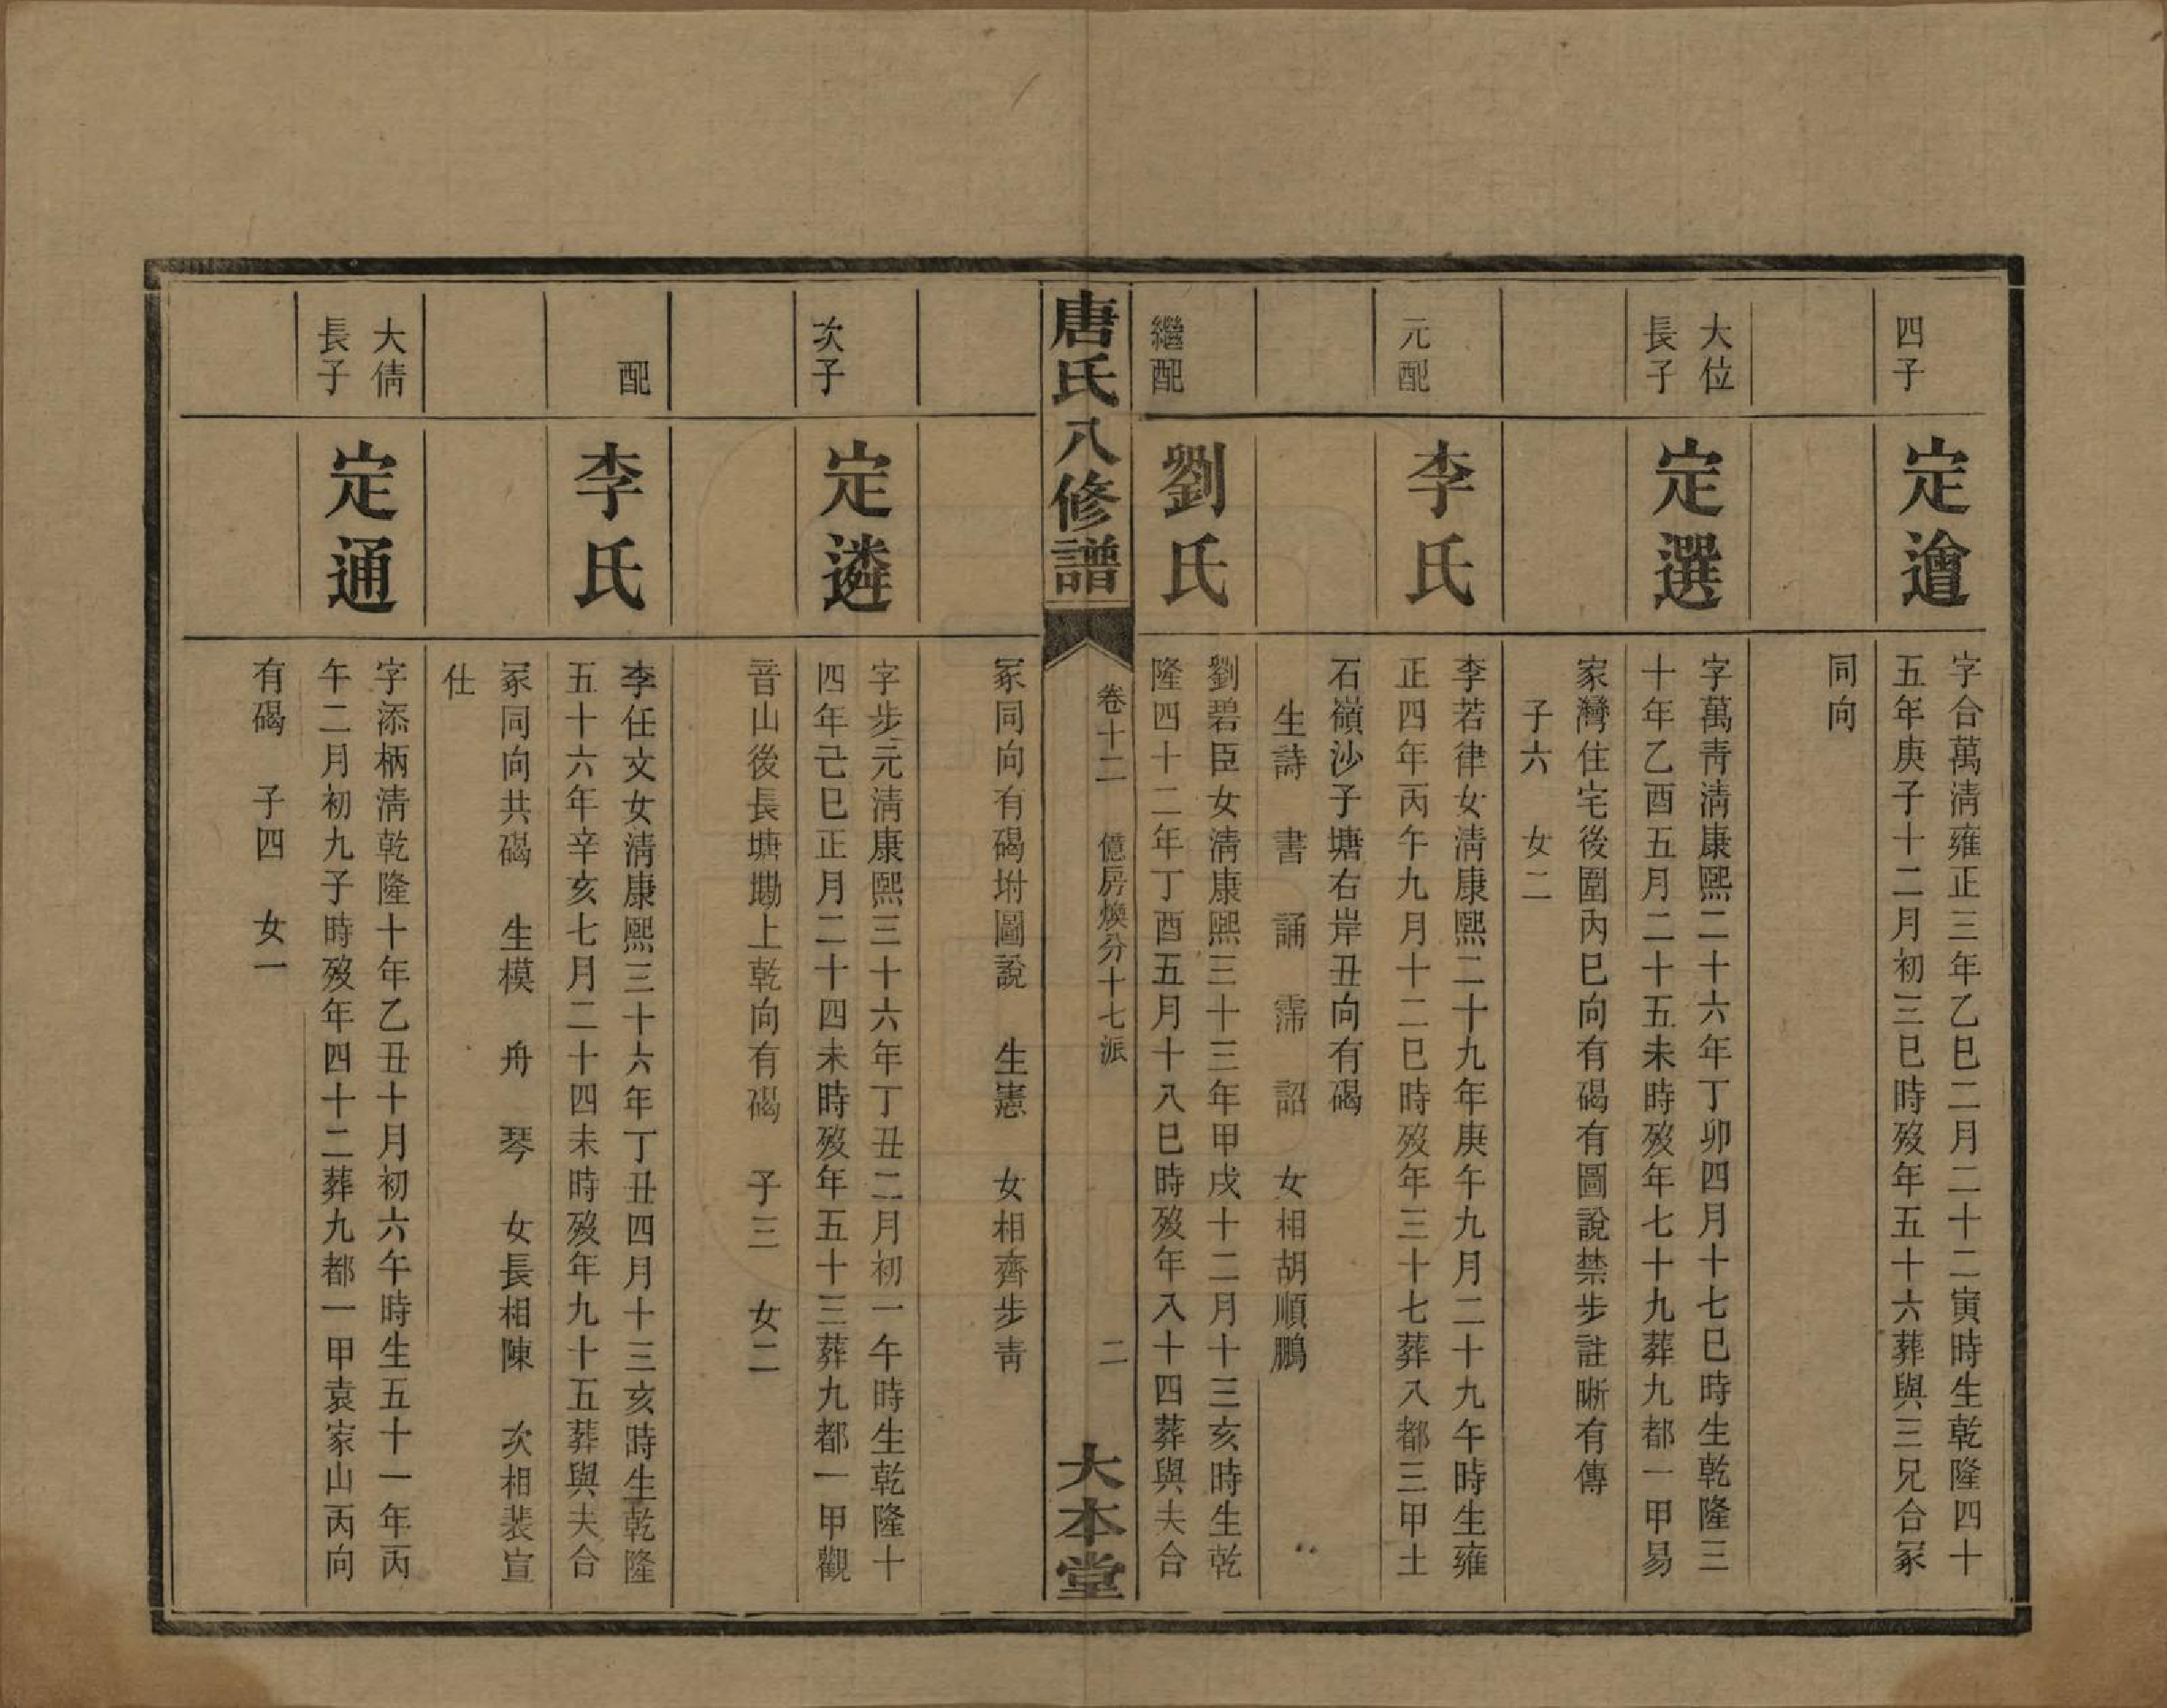 四子
定遵
字合萬淸雍正三年乙巳二月二十二寅時生乾隆四十
五年庚子十二月初三巳時歿年五十六葬與三兄合冢
同向
大位
長子
定選
字萬靑淸康熙二十六年丁卯四月十七巳時生乾隆三
十年乙酉五月二十五未時歿年七十九葬九都一甲易
家灣住宅後圍內巳向有碣有圖說禁步註晰有傳
子六 女二
元配
李氏
李若律女淸康熙二十九年庚午九月二十九午時生雍
正四年丙午九月十二巳時歿年三十七葬八都三甲土
石嶺沙子塘右岸丑向有碣
生詩 書 誦 霈 詔 女相胡順鵬
繼配
劉氏
劉碧臣女淸康熙三十三年甲戌十二月十三亥時生乾
隆四十二年丁酉五月十八巳時歿年八十四葬與夫合
唐氏八修譜
卷十二 億房煥分十七派 二
大本堂
冢同向有碣坿圖說 生憲 女相齊步靑
次子
定遴
字步元淸康熙三十六年丁丑二月初一午時生乾隆十
四年己巳正月二十四未時歿年五十三葬九都一甲觀
音山後長塘墈上乾向有碣 子三 女二
配
李氏
李任文女淸康熙三十六年丁丑四月十三亥時生乾隆
五十六年辛亥七月二十四未時歿年九十五葬與夫合
冢同向共碣 生模 舟 琴 女長相陳 次相裴宣
仕
大倩
長子
定通
字添柄淸乾隆十年乙丑十月初六午時生五十一年丙
午二月初九子時歿年四十二葬九都一甲袁家山丙向
有碣 子四 女一